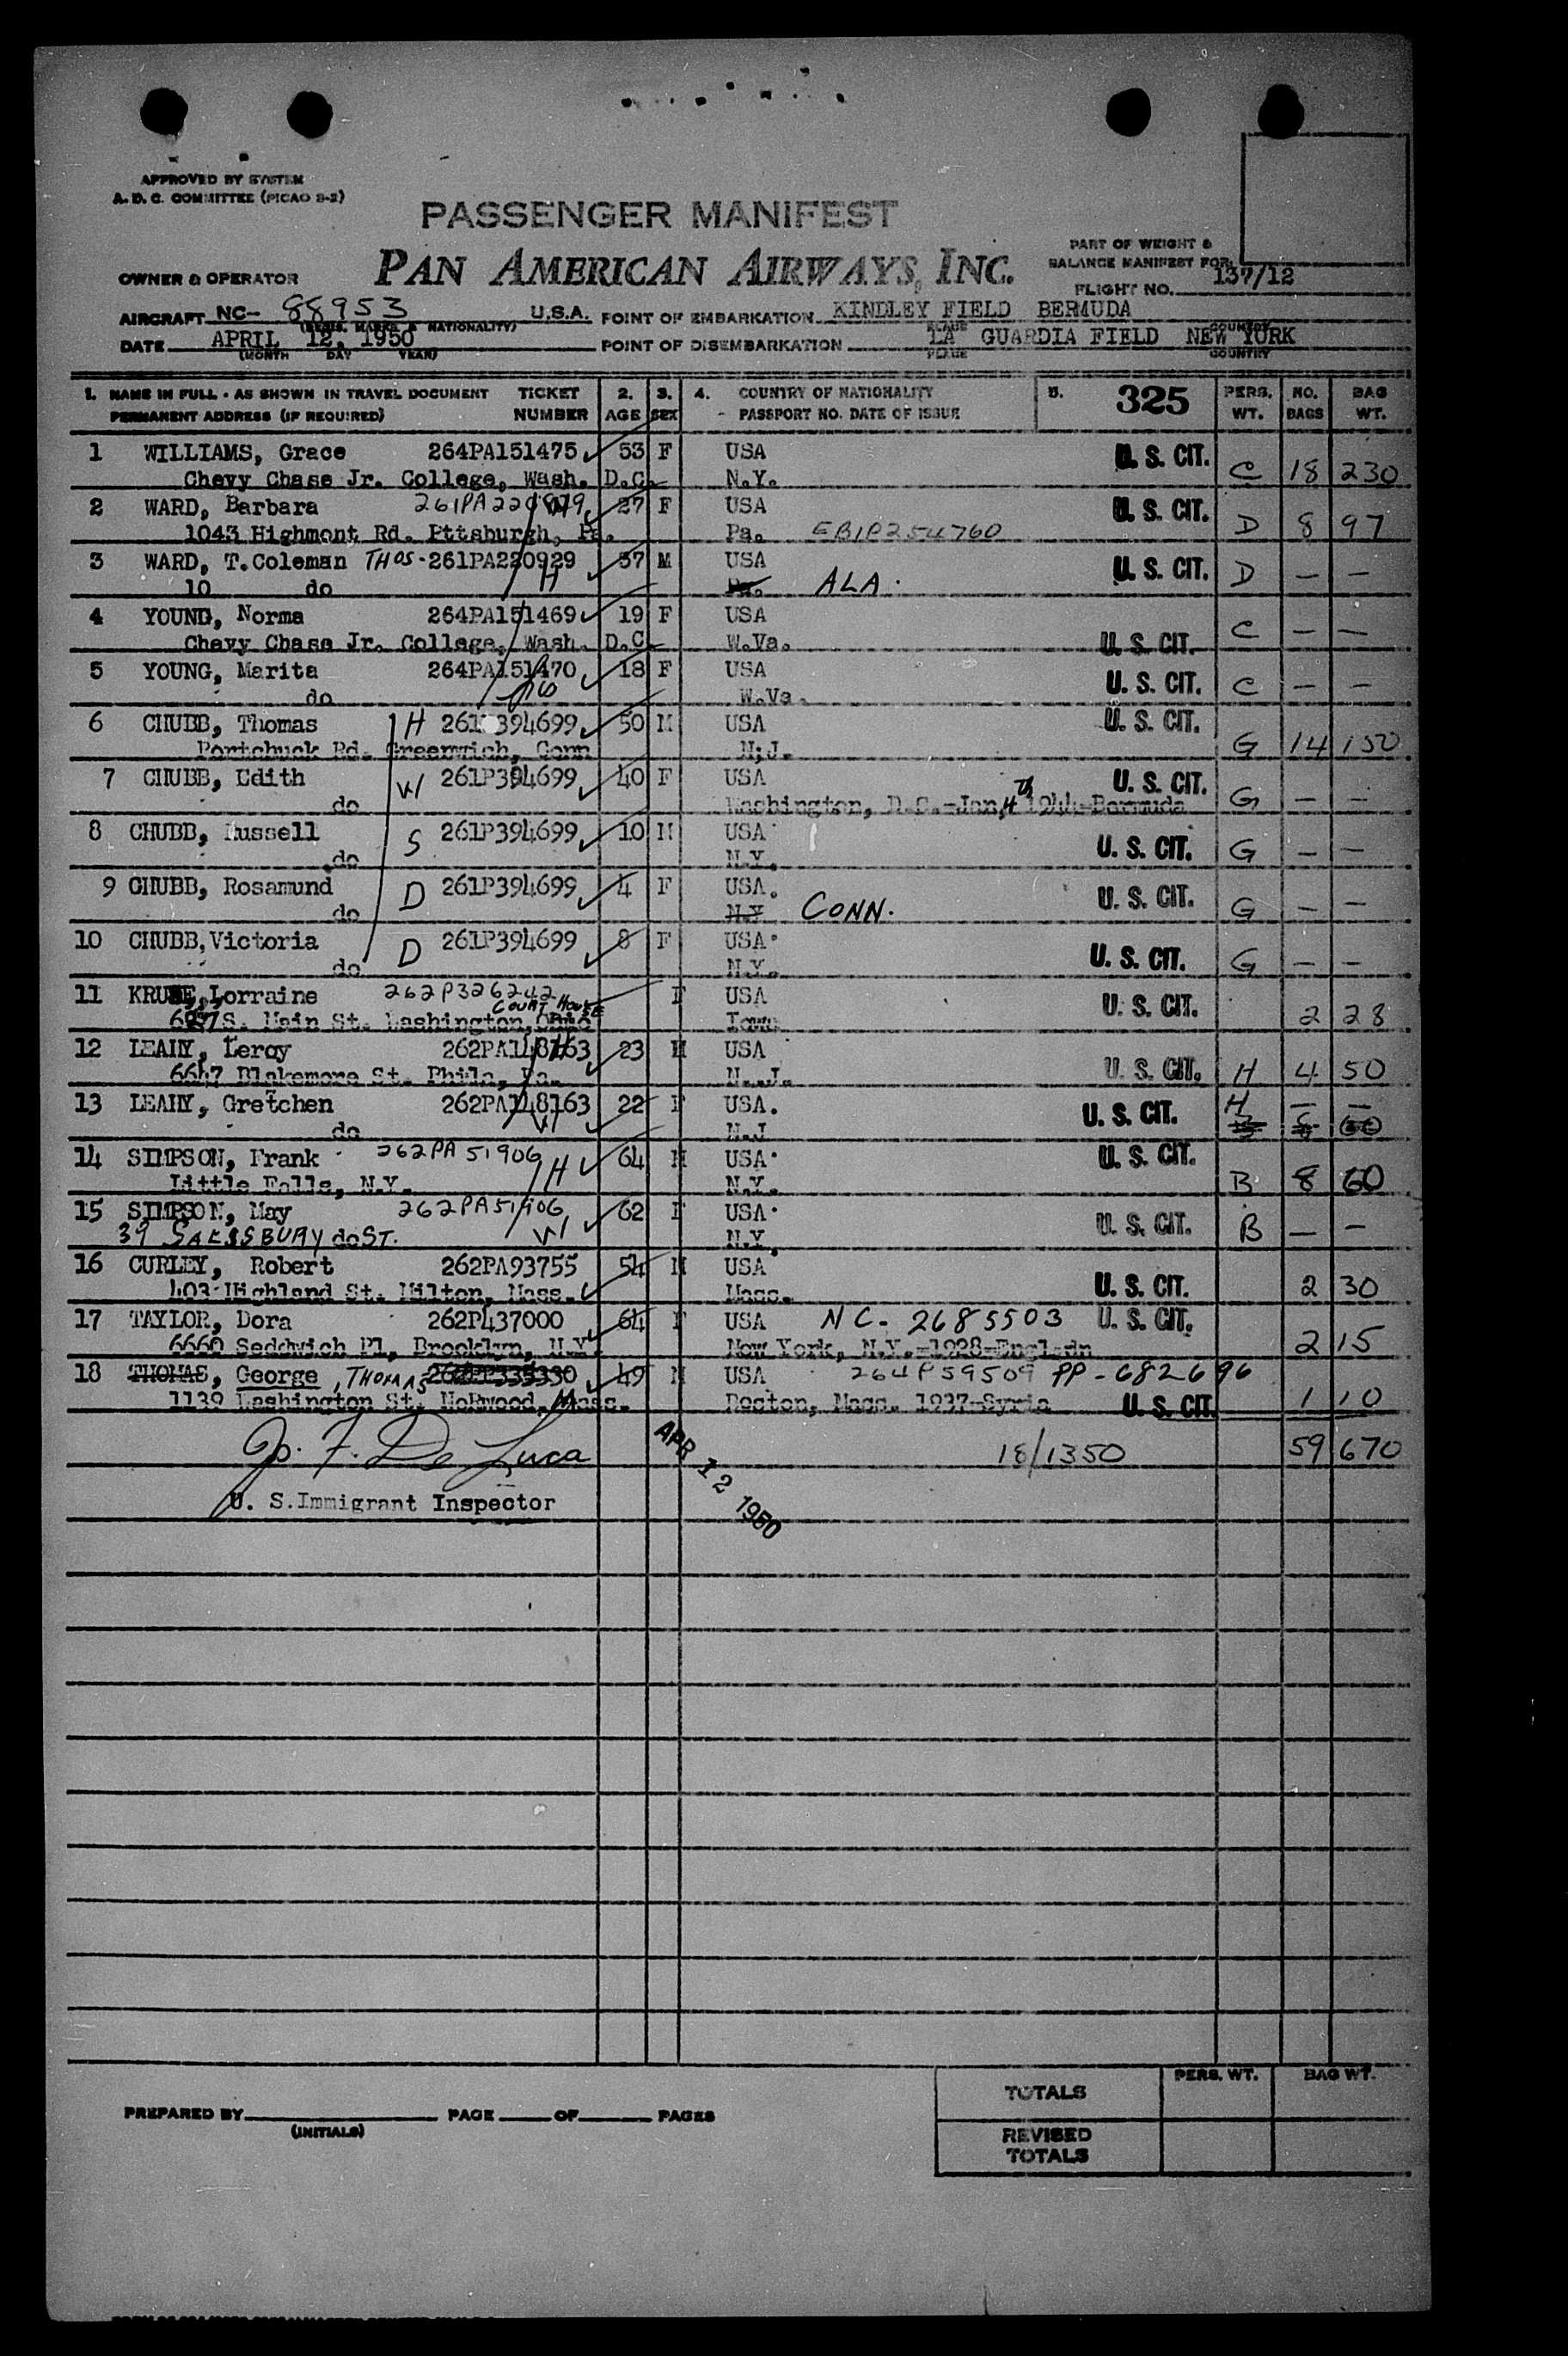 APPROVED BY SYSTEM
A. D. C. COMMITTEE (PICAO S-2)
PASSENGER MANIFEST
PART OF WEIGHT &
BALANCE MANIFEST FOR
OWNER & OPERATOR PAN AMERICAN AIRWAYS, INC.
FLIGHT NO. 137/12
AIRCRAFT NC- 88953 U.S.A. POINT OF EMBARKATION KINDLEY FIELD BERMUDA
(REGIS. MARKS & NATIONALITY) PLACE COUNTRY
DATE APRIL 12, 1950 POINT OF DISEMBARKATION LA GUARDIA FIELD NEW YORK
(MONTH DAY YEAR) PLACE COUNTRY
1. NAME IN FULL - AS SHOWN IN TRAVEL DOCUMENT TICKET 2. 3. 4. COUNTRY OF NATIONALITY 5. 325 PERS. NO. BAG
PERMANENT ADDRESS (IF REQUIRED) NUMBER AGE SEX PASSPORT NO. DATE OF ISSUE WT. BAGS WT.
1 WILLIAMS, Grace 264PA151475 53 F USA U. S. CIT.
Chevy Chase Jr. College, Wash. D.C. N.Y. C 18 230
2 WARD, Barbara 261PA220929 27 F USA U. S. CIT.
1043 Highmont Rd. Pttsburgh, Pa. Pa. EBIP254760 D 8 97
3 WARD, T.Coleman THOS- 261PA220929 37 M USA U. S. CIT. D — —
10 do H Pa. ALA.
4 YOUNG, Norma 264PA151469 19 F USA C — —
Chevy Chase Jr. College, Wash. D.C. W.Va. U. S. CIT.
5 YOUNG, Marita 264PA151470 18 F USA U. S. CIT. C — —
do W.Va.
6 CHUBB, Thomas H 261P394699 50 M USA U. S. CIT.
Portchuck Rd. Greenwich, Conn N.J. G 14 150
7 CHUBB, Edith W 261P394699 40 F USA U. S. CIT.
do Washington, D.C.-Jan, 4th 1944-Bermuda G — —
8 CHUBB, Russell S 261P394699 10 M USA U. S. CIT. G — —
do N.Y.
9 CHUBB, Rosamund D 261P394699 4 F USA. U. S. CIT.
do N.Y CONN. G — —
10 CHUBB, Victoria D 261P394699 8 F USA U. S. CIT. G — —
do N.Y.
11 KRUSE, Lorraine 262P326242 F USA U. S. CIT.
S. Main St. Washington, COURT HOUSE Ohio Iowa 2 28
12 LEAHY, Leroy 262PA148163 23 M USA
6647 Blakemore St. Phila, Pa. H N.J. U. S. CIT. H 4 50
13 LEAHY, Gretchen 262PA148163 22 F USA. U. S. CIT. H — —
do W N.J 60
14 SIMPSON, Frank 262PA51906 64 M USA U. S. CIT.
Little Falls, N.Y. H N.Y. B 8 60
15 SIMPSON, May 262PA51906 62 F USA U. S. CIT. B — —
39 SALSSBURY do ST. W N.Y.
16 CURLEY, Robert 262PA93755 54 M USA
403 Highland St. Milton, Mass. Mass. U. S. CIT. 2 30
17 TAYLOR, Dora 262P437000 64 F USA NC- 2685503 U. S. CIT.
6660 Seddwich Pl, Brooklyn, N.Y. New York, N.Y.-1928-England 2 15
18 THOMAS, George , THOMAS 49 M USA 264P59509 PP-682696
1139 Washington St. NoRwood, Mass. Boston, Mass. 1937-Syria U. S. CIT. 1 10
Jo. F. De Luca 18/1350 59 670
U. S.Immigrant Inspector
APR 12 1950
TOTALS PERS. WT. BAG WT.
PREPARED BY PAGE OF PAGES
(INITIALS)
REVISED
TOTALS